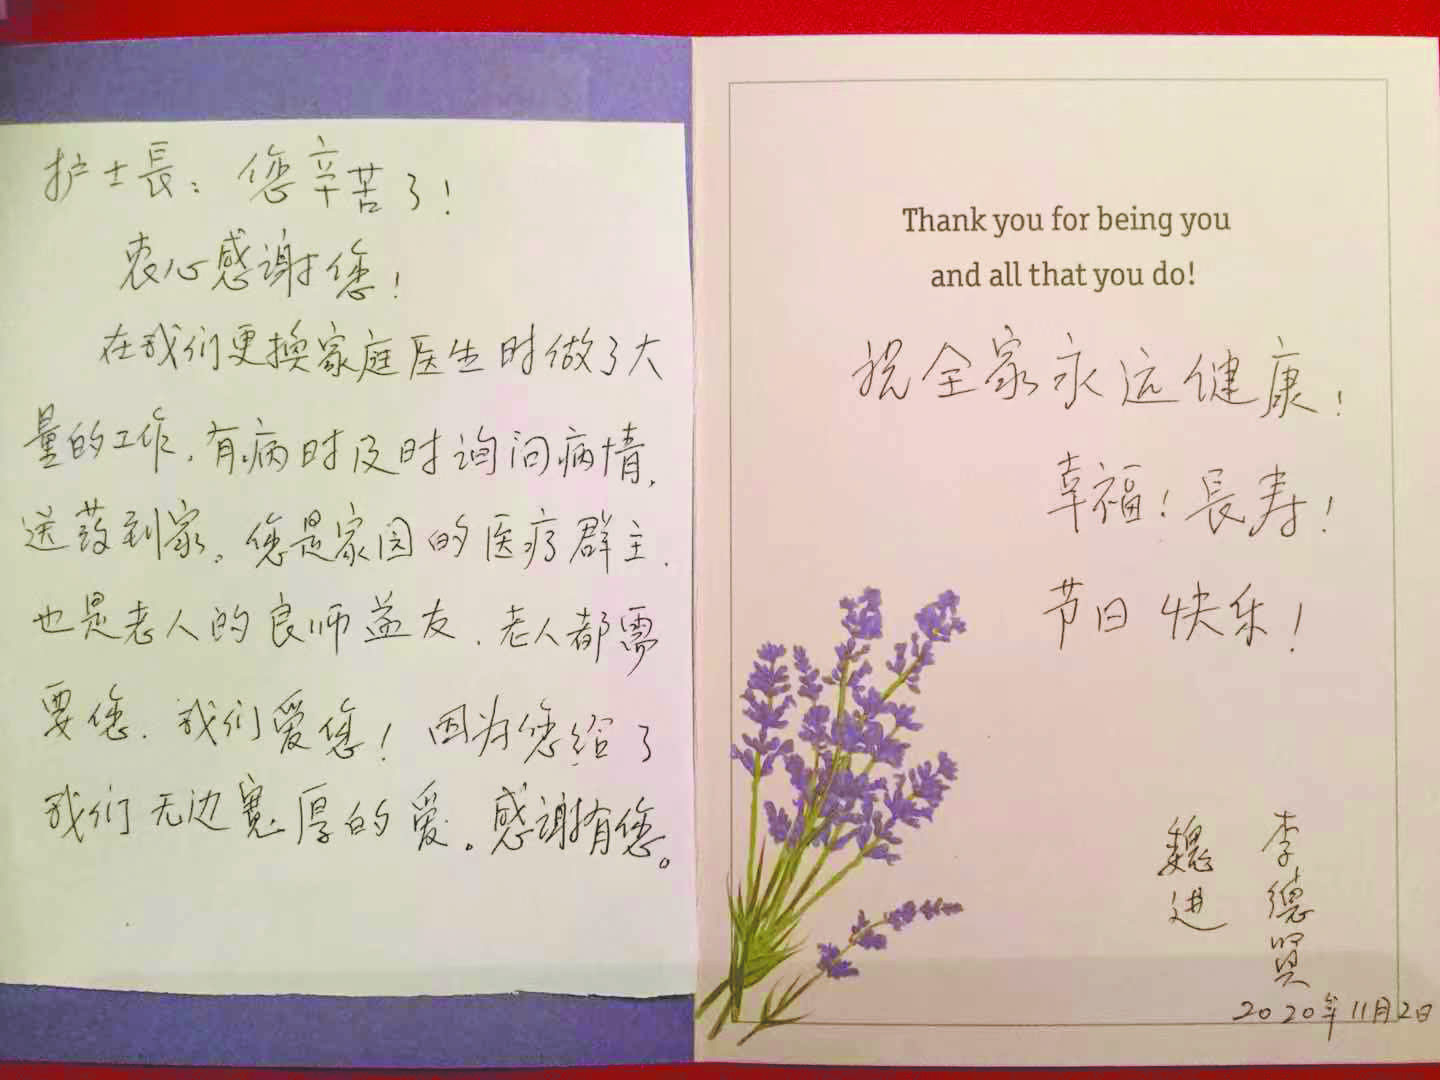 护士長：您辛苦了！
衷心感谢您！
在我们更换家庭医生时做了大
量的工作，有病时及时询问病情，
送药到家。您是家园的医疗群主，
也是老人的良师益友，老人都需
要您，我们爱您！因为您给了
我们无边宽厚的爱。感谢有您。
Thank you for being you
and all that you do!
祝全家永远健康！
幸福！長寿！
节日快乐！
李德贤
魏进
2020年11月2日